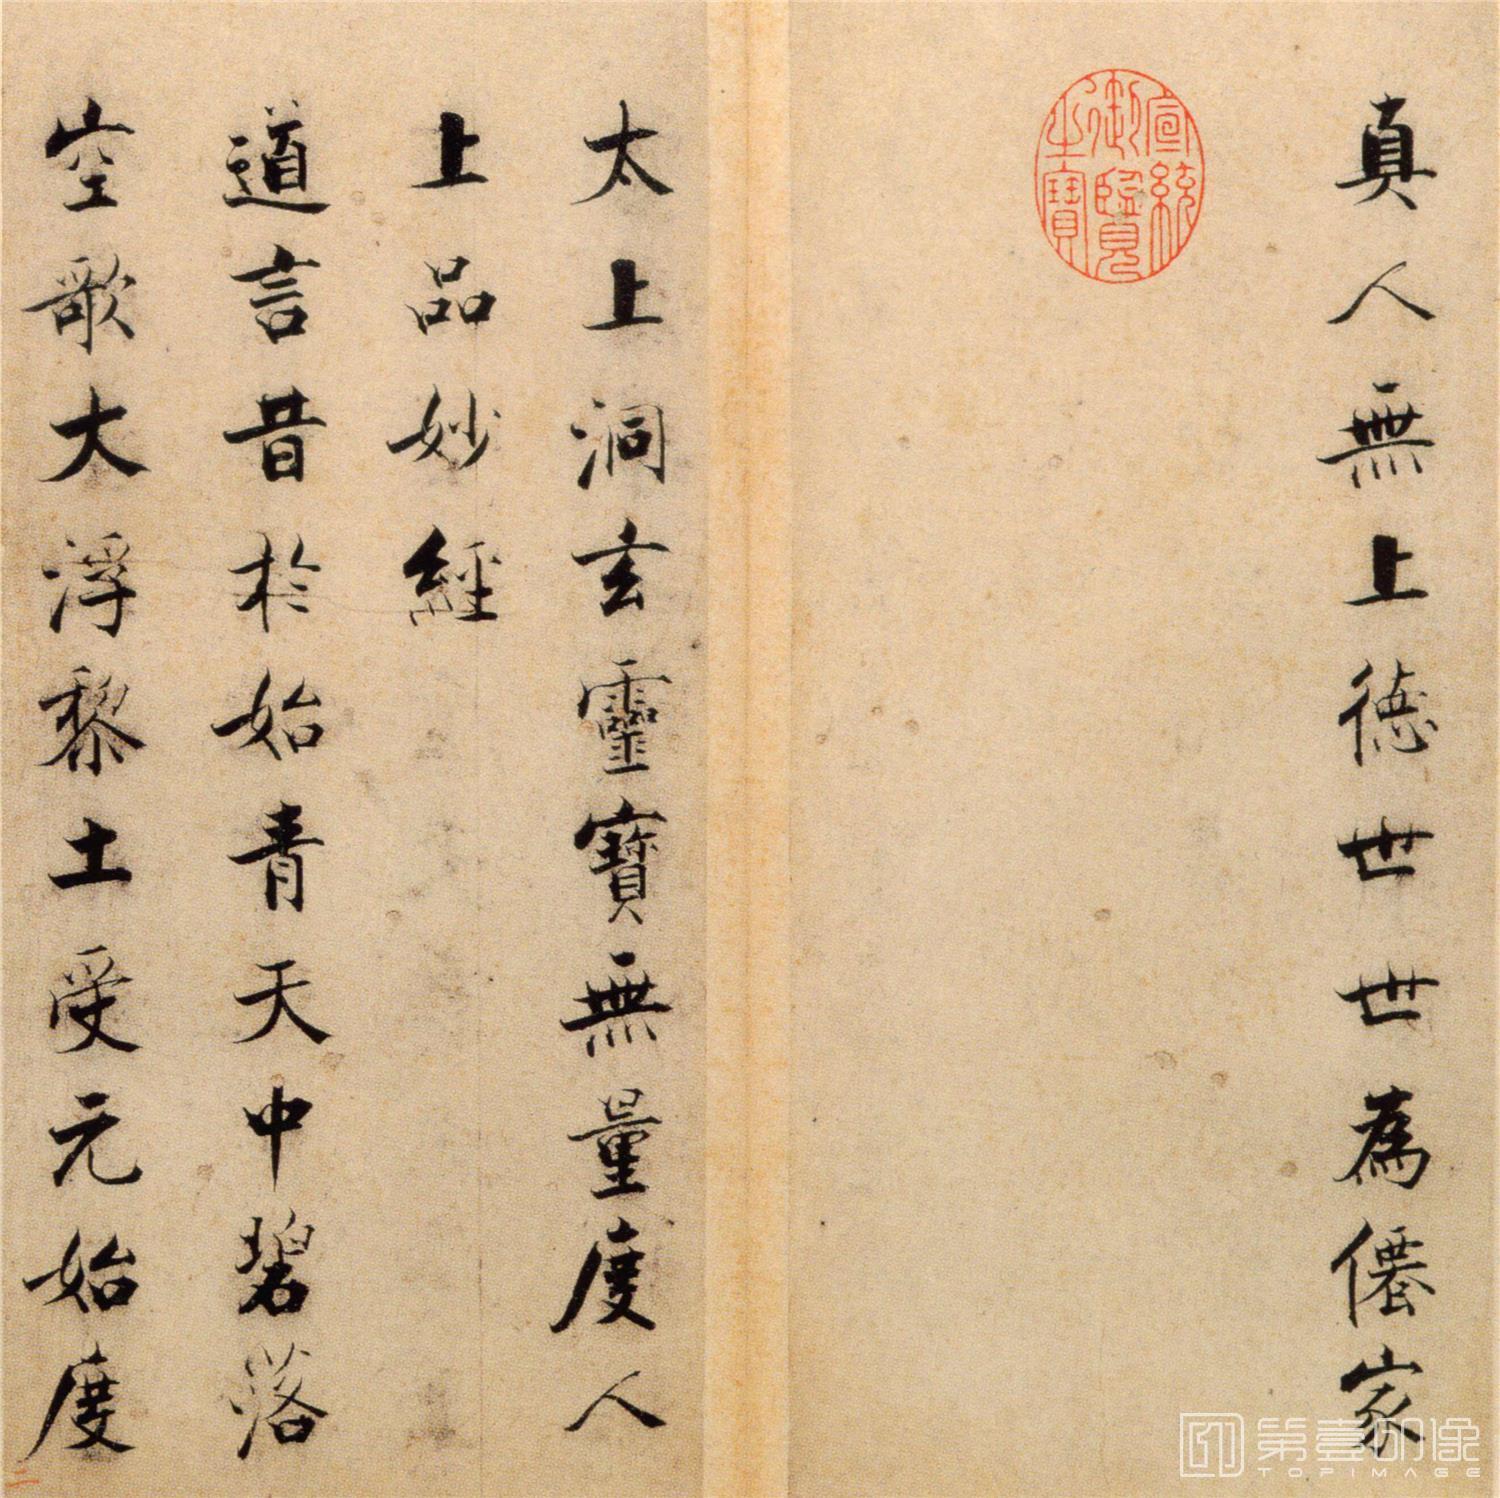 真人無上德世世為僊家
宣統
御覽
之寶
太上洞玄靈寶無量度人
上品妙經
道言昔於始青天中碧落
空歌大浮黎土受元始度
二
第壹印像
TOPIMAGE